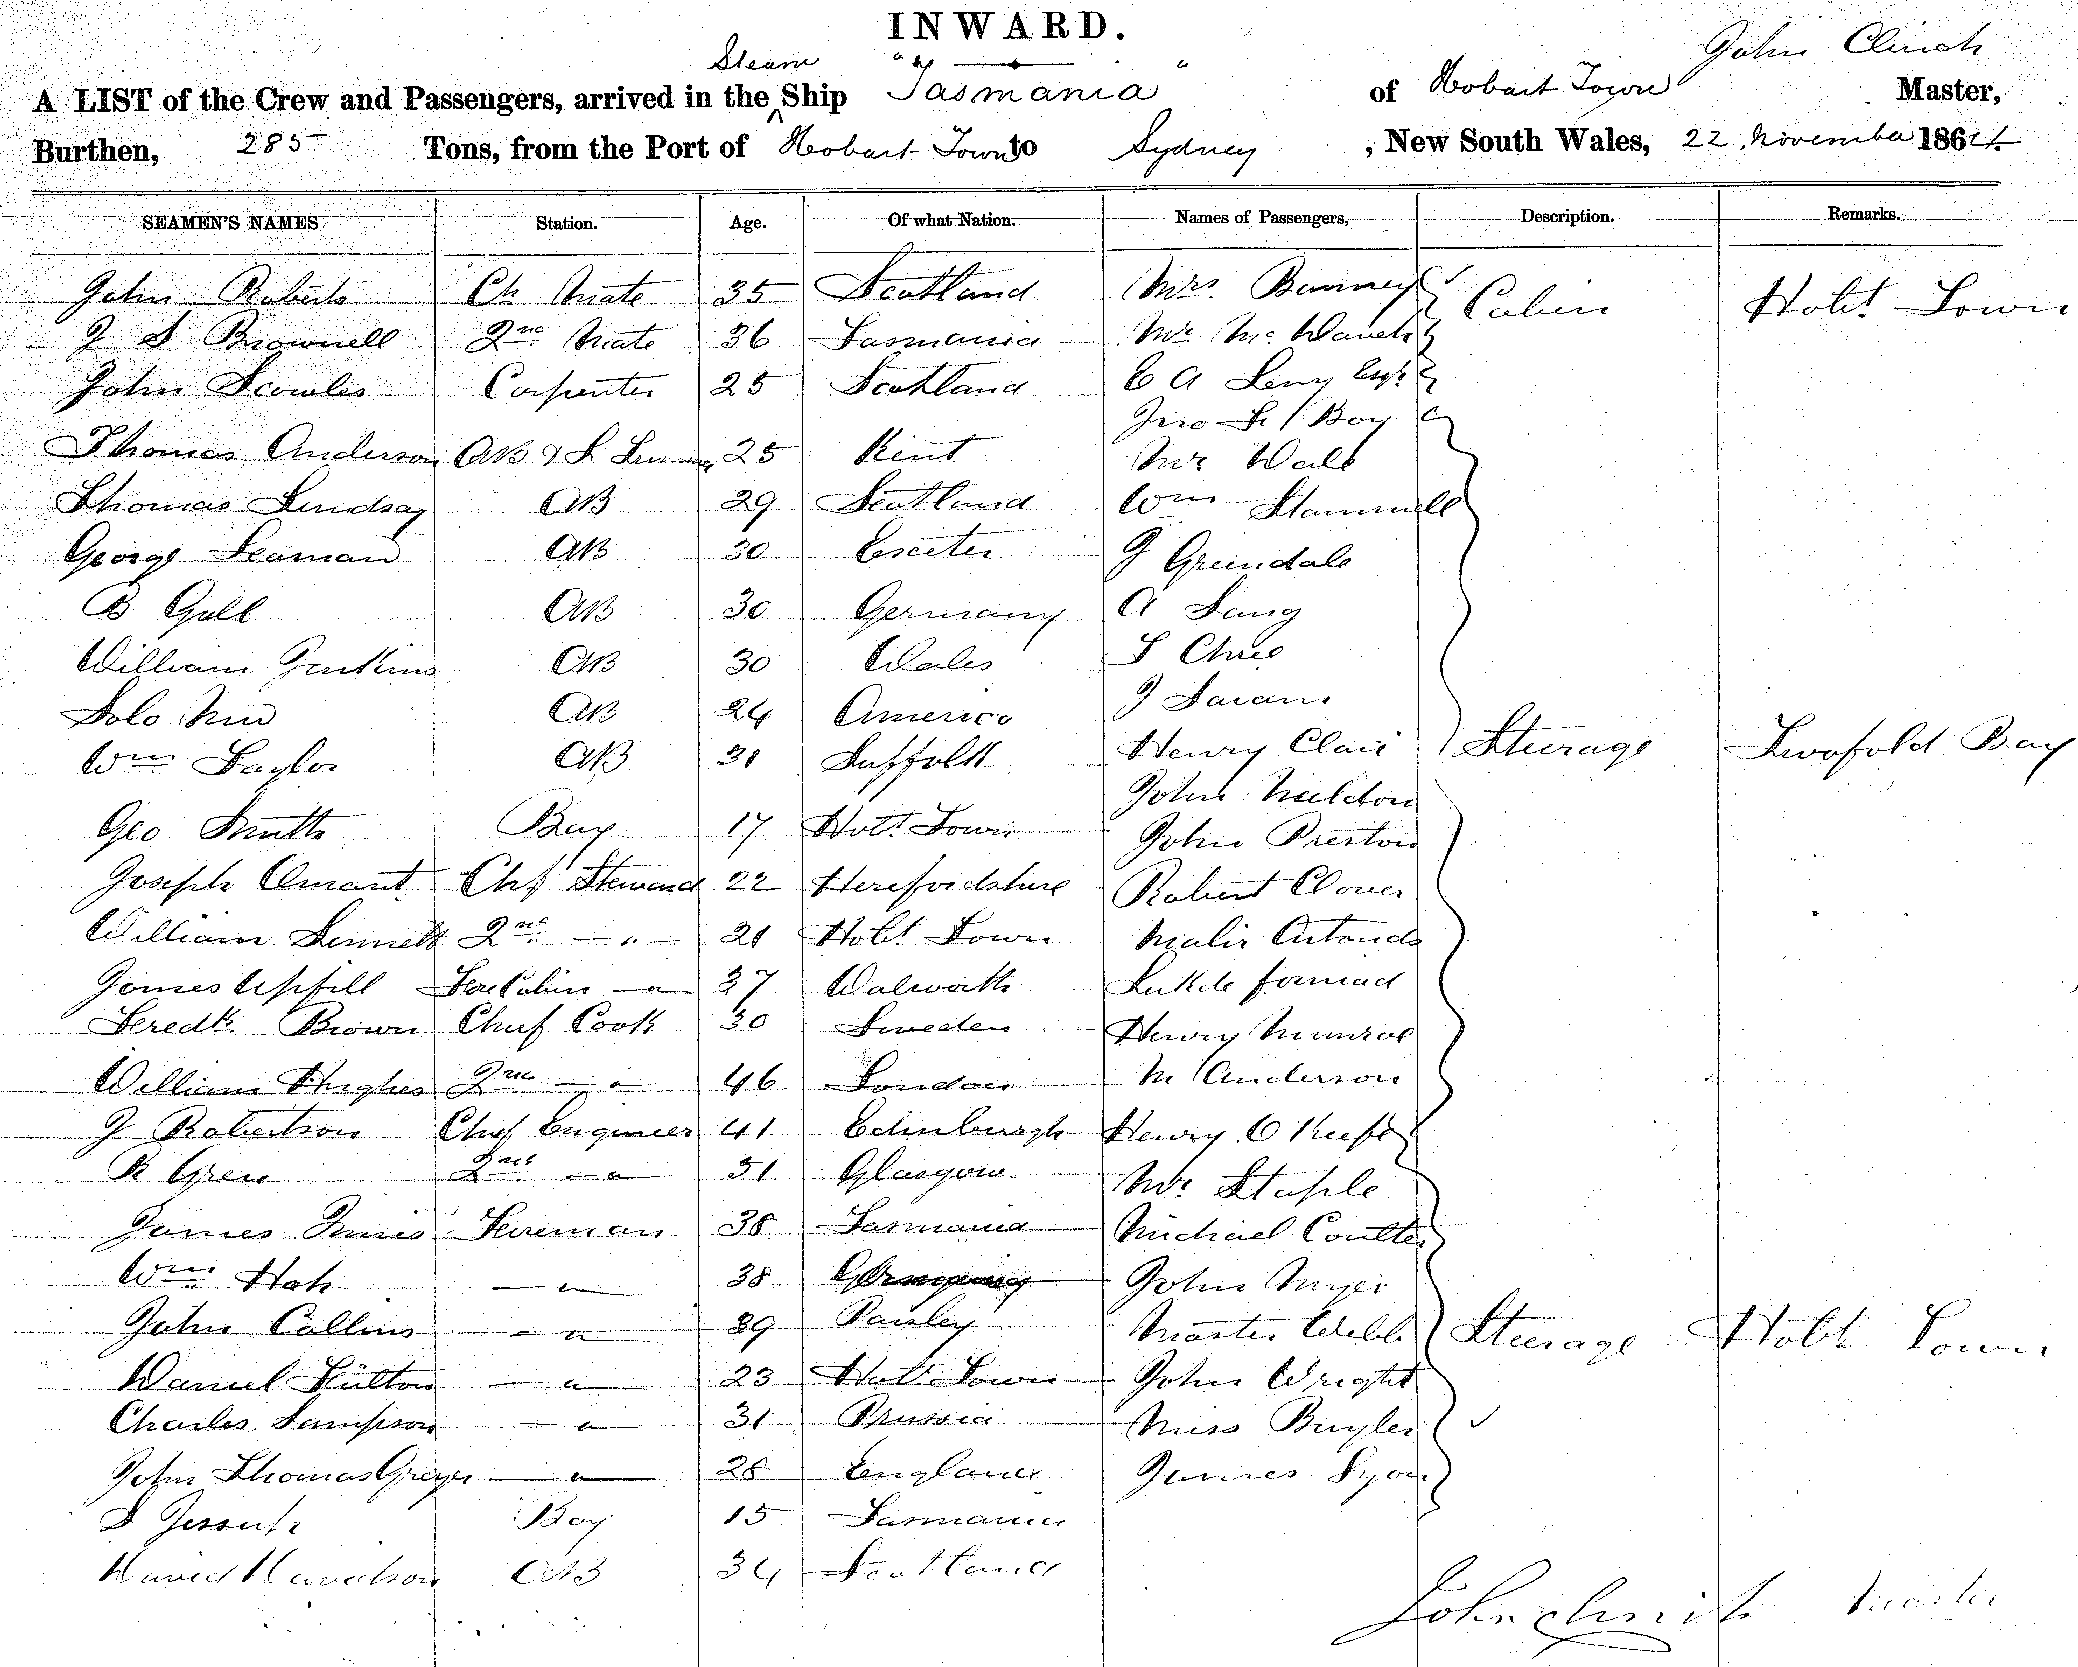 INWARD.
John Clinch
Steam
A LIST of the Crew and Passengers, arrived in the Ship "Tasmania" of Hobart Town Master,
Burthen, 285 Tons, from the Port of Hobart Town to Sydney, New South Wales, 22 November 1864.
SEAMEN'S NAMES Station. Age. Of what Nation. Names of Passengers, Description. Remarks.
John Roberts Ch Mate 35 Scotland Mrs. Cabin Hobt Town
Brownell 2nd Mate 36 Tasmania Mr Mc
John Scowles Carpenter 25 Scotland C A Esqr
Boy
Thomas Anderson AB & L 25 Kent Mr Wall
Thomas Lindsay AB 29 Scotland Wm Stammell
George Seaman AB 30 Exeter J Greendale
B Gall AB 30 Germany A Lang
William Jenkins AB 30 Wales
Solo AB 24 America J
Wm Taylor AB 31 Suffolk Henry Clair Steerage Twofold Bay
John
Geo Smith Boy 17 Hobt Town John Preston
Joseph Chf Steward 22 Herefordshire Robert Clover
William Sennett 2nd " 21 Hobt Town
James Upfill Fore Cabin " 37 Walworth
Fredk. Brown Chief Cook 30 Sweden Henry Munroe
William Hughes 2nd " 46 London M Anderson
J Robertson Chief Engineer 41 Edinburgh Henry O Keefe
R Grew 2nd " 31 Glasgow Mr Staple
James Innis Fireman 38 Tasmania Michael Coulter
Wm " 38 Germany John
John Collins " 39 Paisley Master Webb Steerage Hobt Town
Daniel Fulton " 23 Hobt Town John Wright
Charles Sampson " 31 Prussia Miss Bugler
John Thomas " 28 England James Lyon
Boy 15 Tasmania
David Davidson AB 34 Scotland
John Clinch Master